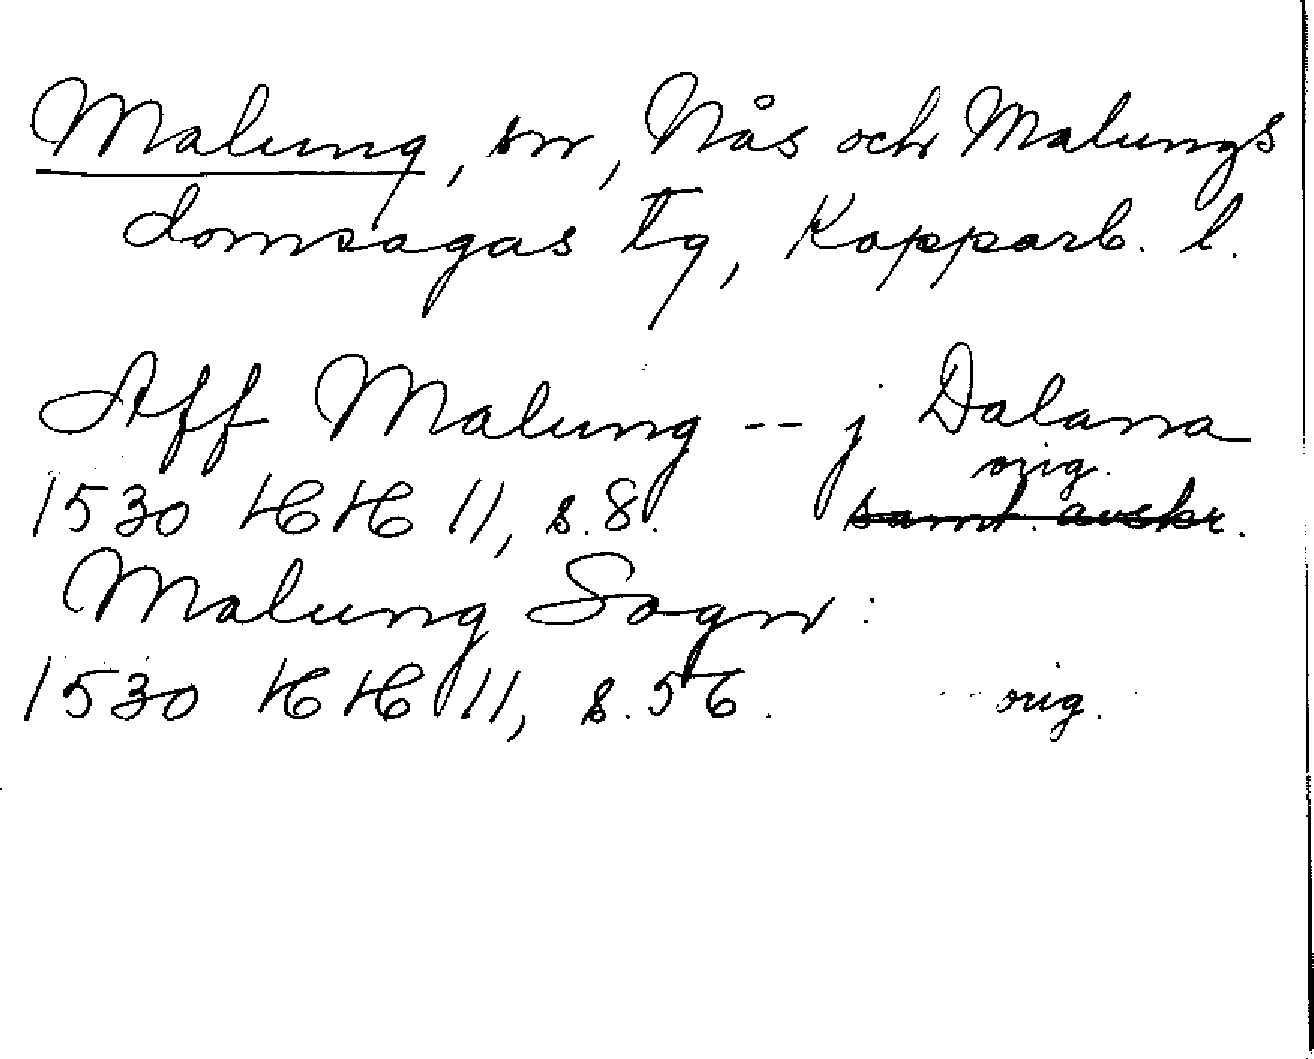 Malung, sn, Nås och Malungs
domsagas tg, Kopparb. l.
Aff Malung -- j Dalarna
orig.
1530 HH 11, s. 8. samt. avskr.
Malung Sogn :
1530 HH 11, s. 56. orig.